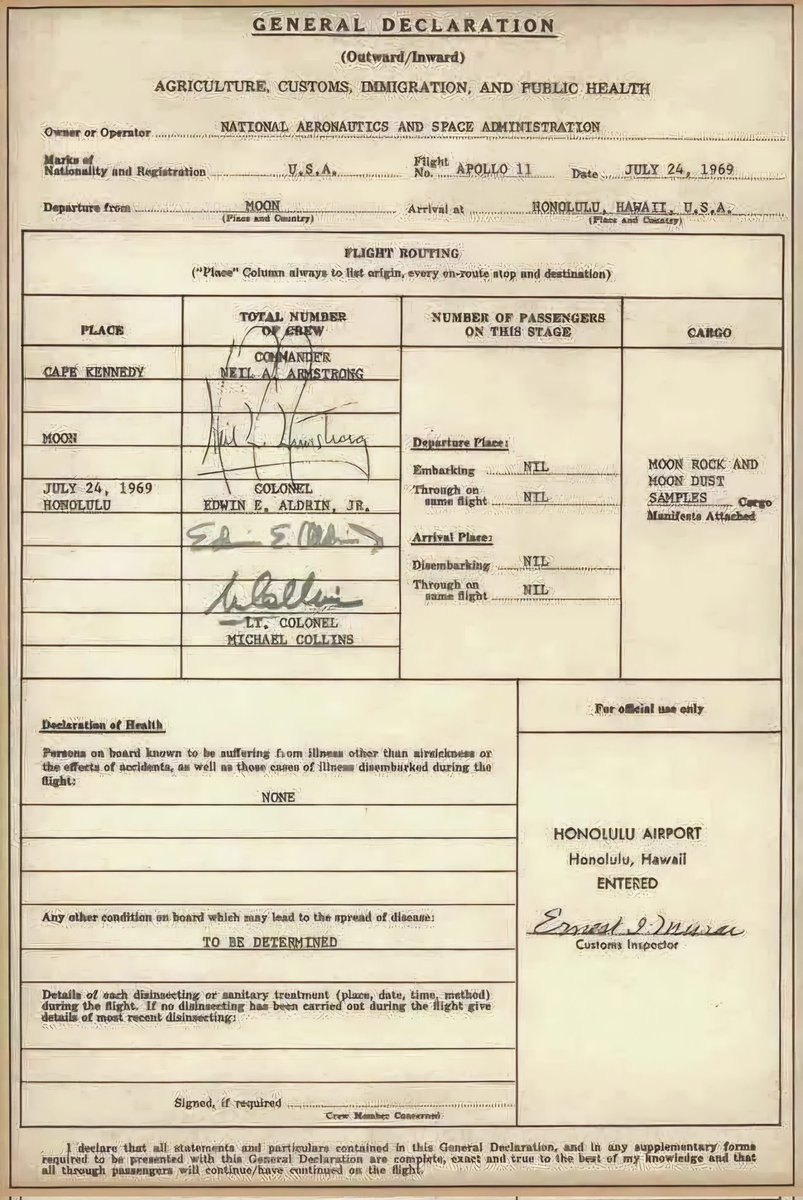 GENERAL DECLARATION
(Outward/Inward)
AGRICULTURE, CUSTOMS, IMMIGRATION, AND PUBLIC HEALTH
Owner or Operator NATIONAL AERONAUTICS AND SPACE ADMINISTRATION
Marks of
Nationality and Registration U.S.A. Flight No. APOLLO 11 Date JULY 24, 1969
Departure from MOON Arrival at HONOLULU, HAWAII, U.S.A.
(Place and Country) (Place and Country)
FLIGHT ROUTING
("Place" Column always to list origin, every en-route stop and destination)
PLACE
CAPE KENNEDY
MOON
JULY 24, 1969
HONOLULU
TOTAL NUMBER
OF CREW
COMMANDER
NEIL A. ARMSTRONG
Neil A. Armstrong
COLONEL
EDWIN E. ALDRIN, JR.
Edwin E. Aldrin Jr
M Collins
LT. COLONEL
MICHAEL COLLINS
NUMBER OF PASSENGERS
ON THIS STAGE
Departure Place:
Embarking NIL
Through on
same flight NIL
Arrival Place:
Disembarking NIL
Through on
same flight NIL
CARGO
MOON ROCK AND
MOON DUST
SAMPLES Cargo
Manifests Attached
Declaration of Health
Persons on board known to be suffering from illness other than airsickness or
the effects of accidents, as well as those cases of illness disembarked during the
flight:
NONE
Any other condition on board which may lead to the spread of disease:
TO BE DETERMINED
Details of each disinsecting or sanitary treatment (place, date, time, method)
during the flight. If no disinsecting has been carried out during the flight give
details of most recent disinsecting:
Signed, if required
Crew Member Concerned
For official use only
HONOLULU AIRPORT
Honolulu, Hawaii
ENTERED
Ernest I. Murai
Customs Inspector
I declare that all statements and particulars contained in this General Declaration, and in any supplementary forms
required to be presented with this General Declaration are complete, exact and true to the best of my knowledge and that
all through passengers will continue/have continued on the flight.